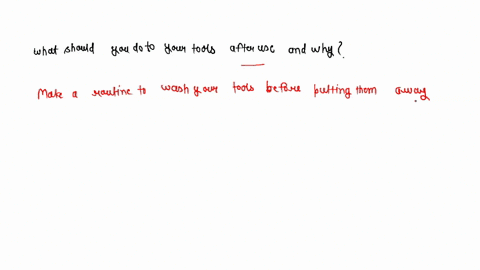 what should you do to your tools after use and why?
Make a routine to wash your tools before putting them away.